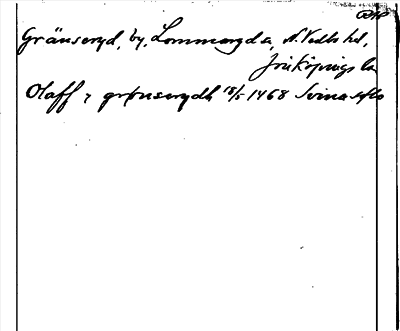 Gränseryd, by, Lommaryds, N. Vedbo hd,
Jönköpings län
Olaff i grenserydh 18/5 1468